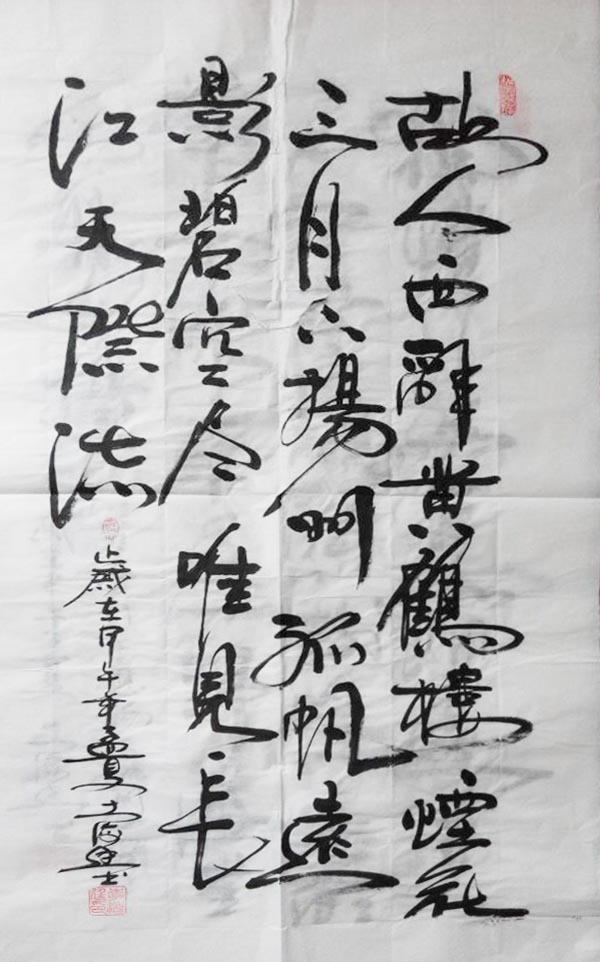 故人西辭黃鶴樓煙花
三月下揚州孤帆遠
影碧空尽唯見長
江天際流
歲在甲午年夏